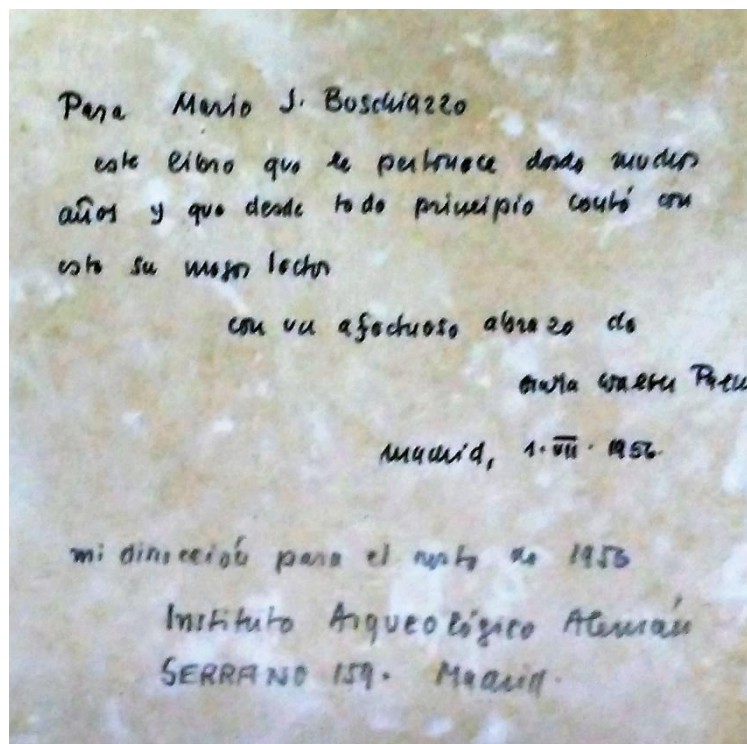 Para Mario J. Buschiazzo
este libro que le pertenece desde muchos
años y que desde todo principio contó con
este su mejor lector
con un afectuoso abrazo de
Madrid, 1·VII·1956
mi dirección para el resto de 1956
Instituto Arqueológico Alemán
SERRANO 159. Madrid.